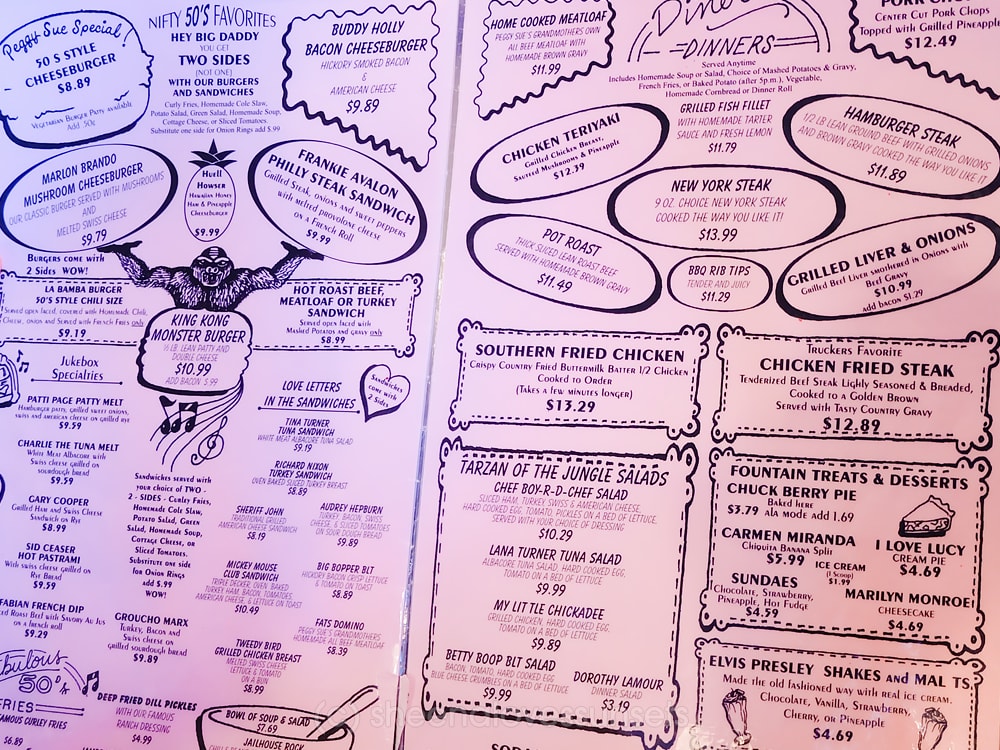 Peggy Sue Special!
50'S STYLE
CHEESEBURGER
$8.89
Vegetarian Burger Patty available
Add .50¢
NIFTY 50'S FAVORITES
HEY BIG DADDY
YOU GET
TWO SIDES
(NOT ONE)
WITH OUR BURGERS
AND SANDWICHES
Curly Fries, Homemade Cole Slaw,
Potato Salad, Green Salad, Homemade Soup,
Cottage Cheese, or Sliced Tomatoes.
Substitute one side for Onion Rings add $.99
BUDDY HOLLY
BACON CHEESEBURGER
HICKORY SMOKED BACON
&
AMERICAN CHEESE
$9.89
MARLON BRANDO
MUSHROOM CHEESEBURGER
OUR CLASSIC BURGER SERVED WITH MUSHROOMS
AND
MELTED SWISS CHEESE
$9.79
Huell
Howser
Hawaiian Honey
Ham & Pineapple
Cheeseburger
$9.99
FRANKIE AVALON
PHILLY STEAK SANDWICH
Grilled Steak, onions and sweet peppers
with melted provolone cheese
on a French Roll
$9.99
Burgers come with
2 Sides WOW!
LA BAMBA BURGER
50'S STYLE CHILI SIZE
Served open faced, covered with Homemade Chili,
Cheese, onion and Served with French Fries only
$9.19
KING KONG
MONSTER BURGER
½ LB. LEAN PATTY AND
DOUBLE CHEESE
$10.99
ADD BACON $.99
HOT ROAST BEEF,
MEATLOAF OR TURKEY
SANDWICH
Served open faced with
Mashed Potatos and gravy only
$8.99
Jukebox
Specialties
PATTI PAGE PATTY MELT
Hamburger patty, grilled sweet onions,
swiss and american cheese on grilled rye
$9.59
CHARLIE THE TUNA MELT
White Meat Albacore with
Swiss cheese grilled on
sourdough bread
$9.59
GARY COOPER
Grilled Ham and Swiss Cheese
Sandwich on Rye
$8.99
SID CEASER
HOT PASTRAMI
With swiss cheese grilled on
Rye Bread
$9.59
FABIAN FRENCH DIP
Roast Beef with Savory Au Jus
on a french roll
$9.29
GROUCHO MARX
Turkey, Bacon and
Swiss cheese on
grilled sourdough bread
$9.89
Sandwiches served with
your choice of TWO -
2 - SIDES - Curley Fries,
Homemade Cole Slaw,
Potato Salad, Green
Salad, Homemade Soup,
Cottage Cheese, or
Sliced Tomatoes.
Substitute one side
for Onion Rings
add $.99
WOW!
LOVE LETTERS
IN THE SANDWICHES
Sandwiches
come with
2 Sides
TINA TURNER
TUNA SANDWICH
WHITE MEAT ALBACORE TUNA SALAD
$9.19
RICHARD NIXON
TURKEY SANDWICH
OVEN BAKED SLICED TURKEY BREAST
$8.89
SHERIFF JOHN
TRADITIONAL GRILLED
AMERICAN CHEESE SANDWICH
$8.19
AUDREY HEPBURN
TURKEY, BACON, SWISS
CHEESE, & SLICED TOMATOES
ON SOUR DOUGH BREAD
$9.89
MICKEY MOUSE
CLUB SANDWICH
TRIPLE DECKER, OVEN BAKED
TURKEY HAM, BACON, TOMATOES,
AMERICAN CHEESE, & LETTUCE ON TOAST
$10.49
BIG BOPPER BLT
HICKORY BACON CRISP LETTUCE
& TOMATO ON TOAST
$8.89
TWEEDY BIRD
GRILLED CHICKEN BREAST
MELTED SWISS CHEESE
LETTUCE & TOMATO
ON A BUN
$8.99
FATS DOMINO
PEGGY SUE'S GRANDMOTHERS
HOMEMADE ALL BEEF MEATLOAF
$8.39
Fabulous
50's
FRIES
FAMOUS CURLEY FRIES
DEEP FRIED DILL PICKLES
WITH OUR FAMOUS
RANCH DRESSING
$4.99
BOWL OF SOUP & SALAD
$7.69
JAILHOUSE ROCK
HOME COOKED MEATLOAF
PEGGY SUE'S GRANDMOTHERS OWN
ALL BEEF MEATLOAF WITH
HOMEMADE BROWN GRAVY
$11.99
Diner
DINNERS
Served Anytime
Includes Homemade Soup or Salad, Choice of Mashed Potatoes & Gravy,
French Fries, or Baked Potato (after 5p.m.), Vegetable,
Homemade Cornbread or Dinner Roll
PORK CHOPS
Center Cut Pork Chops
Topped with Grilled Pineapple
$12.49
CHICKEN TERIYAKI
Grilled Chicken Breast,
Sauteed Mushrooms & Pineapple
$12.39
GRILLED FISH FILLET
WITH HOMEMADE TARTER
SAUCE AND FRESH LEMON
$11.79
HAMBURGER STEAK
1/2 LB LEAN GROUND BEEF WITH GRILLED ONIONS
AND BROWN GRAVY COOKED THE WAY YOU LIKE IT
$11.89
NEW YORK STEAK
9 OZ. CHOICE NEW YORK STEAK
COOKED THE WAY YOU LIKE IT!
$13.99
POT ROAST
THICK SLICED LEAN ROAST BEEF
SERVED WITH HOMEMADE BROWN GRAVY
$11.49
BBQ RIB TIPS
TENDER AND JUICY
$11.29
GRILLED LIVER & ONIONS
Grilled Beef Liver smothered in Onions with
Beef Gravy
$10.99
add bacon $1.29
SOUTHERN FRIED CHICKEN
Crispy Country Fried Buttermilk Batter 1/2 Chicken
Cooked to Order
(Takes a few minutes longer)
$13.29
Truckers Favorite
CHICKEN FRIED STEAK
Tenderized Beef Steak Lighly Seasoned & Breaded,
Cooked to a Golden Brown
Served with Tasty Country Gravy
$12.89
TARZAN OF THE JUNGLE SALADS
CHEF BOY-R-D-CHEF SALAD
SLICED HAM, TURKEY, SWISS & AMERICAN CHEESE,
HARD COOKED EGG, TOMATO, PICKLES ON A BED OF LETTUCE,
SERVED WITH YOUR CHOICE OF DRESSING
$10.29
LANA TURNER TUNA SALAD
ALBACORE TUNA SALAD, HARD COOKED EGG,
TOMATO ON A BED OF LETTUCE
$9.99
MY LITTLE CHICKADEE
GRILLED CHICKEN, HARD COOKED EGG,
TOMATO ON A BED OF LETTUCE
$9.89
BETTY BOOP BLT SALAD
BACON, TOMATO, HARD COOKED EGG
BLUE CHEESE CRUMBLES ON A BED OF LETTUCE
$9.99
DOROTHY LAMOUR
DINNER SALAD
$3.19
FOUNTAIN TREATS & DESSERTS
CHUCK BERRY PIE
Baked here
$3.79 ala mode add 1.69
CARMEN MIRANDA
Chiquita Banana Split
$5.99
ICE CREAM
(1 Scoop)
$1.99
I LOVE LUCY
CREAM PIE
$4.69
SUNDAES
Chocolate, Strawberry,
Pineapple, Hot Fudge
$4.59
MARILYN MONROE
CHEESECAKE
$4.69
ELVIS PRESLEY SHAKES and MALTS,
Made the old fashioned way with real ice cream.
Chocolate, Vanilla, Strawberry,
Cherry, or Pineapple
$4.69